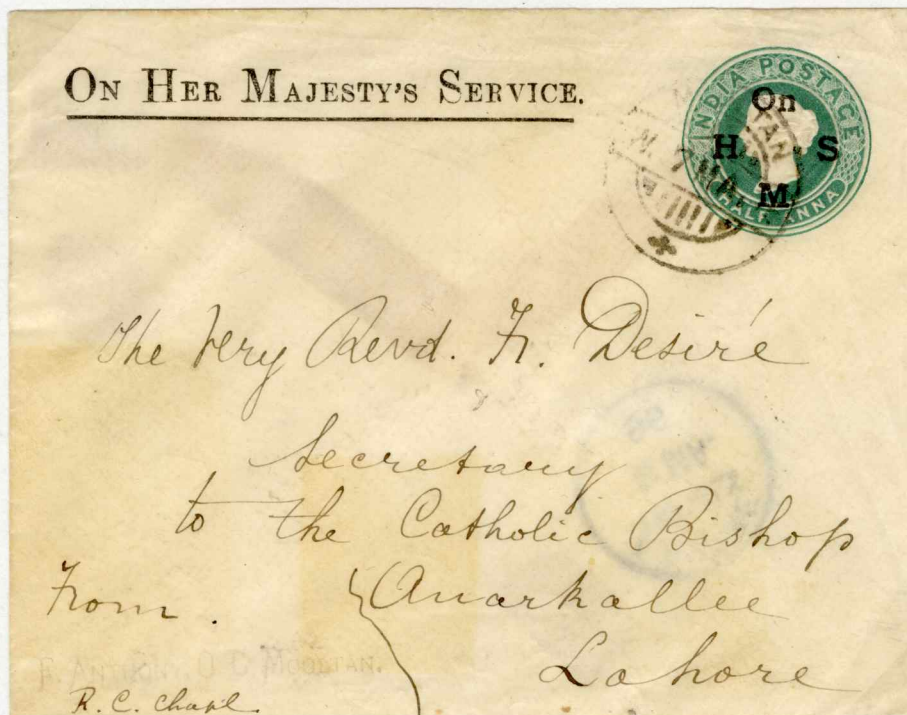 On Her Majesty's Service.
INDIA POSTAGE
On
H S
M
HALF ANNA
The Very Revd. Fr. Desiré
Secretary
to the Catholic Bishop
Anarkallee
Lahore
From.
F. Anthony, O C Mooltan.
R. C. Chapl